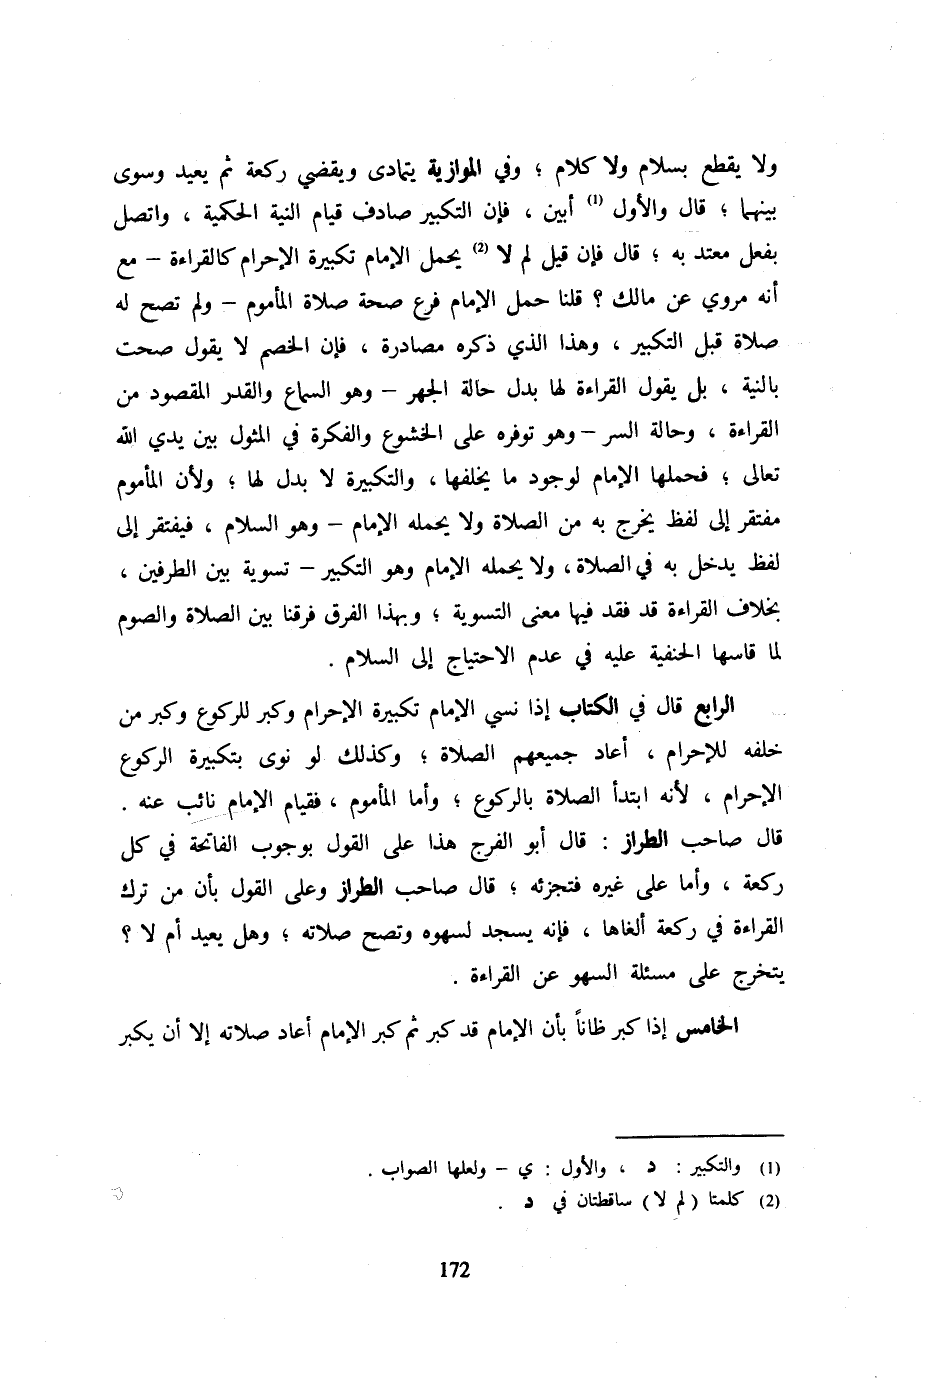 ولا يقطع بسلام ولا كلام ؛ وفي الموازية يتمادى ويقضي ركعة ثم يعيد وسوى
بينهما ؛ قال والأول (1) أبين ، فإن التكبير صادف قيام النية الحكمية ، واتصل
بفعل معتد به ؛ قال فإن قيل لم لا (2) يحمل الإمام تكبيرة الإحرام كالقراءة – مع
أنه مروي عن مالك ؟ قلنا حمل الإمام فرع صحة صلاة المأموم – ولم تصح له
صلاة قبل التكبير ، وهذا الذي ذكره مصادرة ، فإن الخصم لا يقول صحت
بالنية ، بل يقول القراءة لها بدل حالة الجهر – وهو السماع والقدر المقصود من
القراءة ، وحالة السر – وهو توفره على الخشوع والفكرة في المثول بين يدي الله
تعالى ؛ فحملها الإمام لوجود ما يخلفها ، والتكبيرة لا بدل لها ؛ ولأن المأموم
مفتقر إلى لفظ يخرج به من الصلاة ولا يحمله الإمام – وهو السلام ، فيفتقر إلى
لفظ يدخل به في الصلاة ، ولا يحمله الإمام وهو التكبير – تسوية بين الطرفين ،
بخلاف القراءة قد فقد فيها معنى التسوية ؛ وبهذا الفرق فرقنا بين الصلاة والصوم
لما قاسها الحنفية عليه في عدم الاحتياج إلى السلام .
الرابع قال في الكتاب إذا نسي الإمام تكبيرة الإحرام وكبر للركوع وكبر من
خلفه للإحرام ، أعاد جميعهم الصلاة ؛ وكذلك لو نوى بتكبيرة الركوع
الإحرام ، لأنه ابتدأ الصلاة بالركوع ؛ وأما المأموم ، فقيام الإمام نائب عنه .
قال صاحب الطراز : قال أبو الفرج هذا على القول بوجوب الفاتحة في كل
ركعة ، وأما على غيره فتجزئه ؛ قال صاحب الطراز وعلى القول بأن من ترك
القراءة في ركعة ألغاها ، فإنه يسجد لسهوه وتصح صلاته ؛ وهل يعيد أم لا ؟
يتخرج على مسئلة السهو عن القراءة .
الخامس إذا كبر ظاناً بأن الإمام قد كبر ثم كبر الإمام أعاد صلاته إلا أن يكبر
(1) والتكبير : د ، والأول : ي – ولعلها الصواب .
(2) كلمتا ( لم لا ) ساقطتان في د .
172